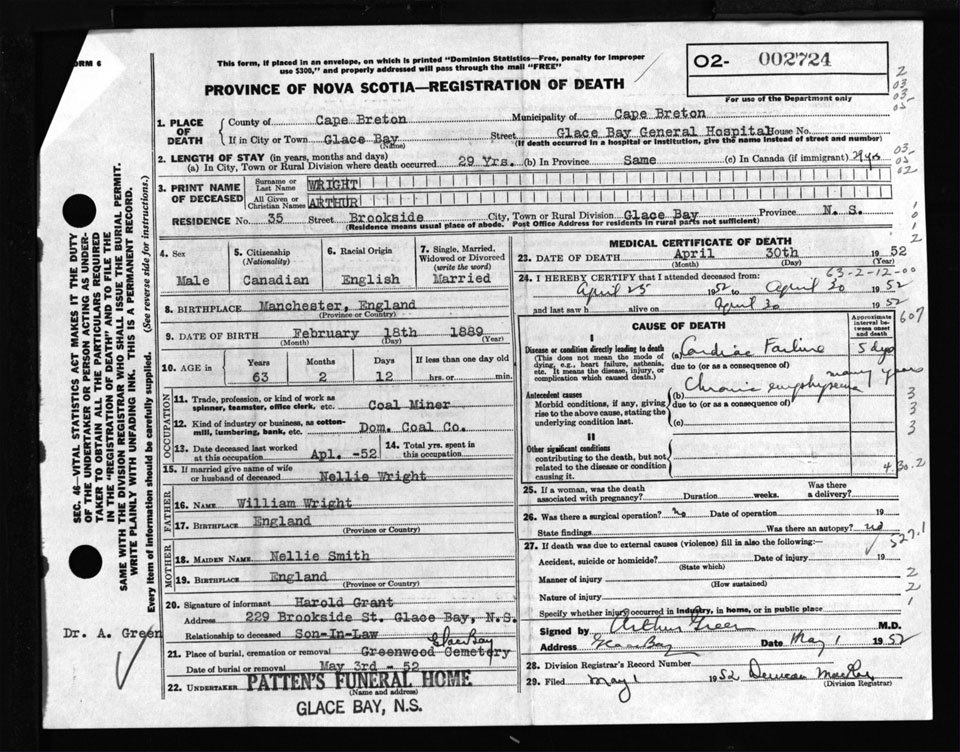 ORM 6
This form, if placed in an envelope, on which is printed "Dominion Statistics—Free, penalty for improper
use $300," and properly addressed will pass through the mail "FREE"
PROVINCE OF NOVA SCOTIA—REGISTRATION OF DEATH
O2- 002724
For use of the Department only
2
03
03-
05-
1. PLACE OF DEATH
County of Cape Breton Municipality of Cape Breton
If in City or Town Glace Bay Street Glace Bay General Hospital House No.
(Name) (If death occurred in a hospital or institution, give the name instead of street and number)
2. LENGTH OF STAY (in years, months and days)
(a) In City, Town or Rural Division where death occurred 29 Yrs. (b) In Province Same (c) In Canada (if immigrant) yrs
03-
05
02
3. PRINT NAME OF DECEASED
Surname or Last Name WRIGHT
All Given or Christian Names ARTHUR
RESIDENCE No. 35 Street Brookside City, Town or Rural Division Glace Bay Province N. S.
(Residence means usual place of abode. Post Office Address for residents in rural parts not sufficient)
4. Sex
Male
5. Citizenship (Nationality)
Canadian
6. Racial Origin
English
7. Single, Married, Widowed or Divorced (write the word)
Married
8. BIRTHPLACE Manchester, England
(Province or Country)
9. DATE OF BIRTH February 18th 1889
(Month) (Day) (Year)
10. AGE in Years Months Days If less than one day old
63 2 12 hrs. or min.
OCCUPATION
11. Trade, profession, or kind of work as spinner, teamster, office clerk, etc. Coal Miner
12. Kind of industry or business, as cotton-mill, lumbering, bank, etc. Dom. Coal Co.
13. Date deceased last worked at this occupation Apl. -52
14. Total yrs. spent in this occupation
15. If married give name of wife or husband of deceased Nellie Wright
FATHER
16. NAME William Wright
17. BIRTHPLACE England
(Province or Country)
MOTHER
18. MAIDEN NAME Nellie Smith
19. BIRTHPLACE England
(Province or Country)
20. Signature of informant Harold Grant
Address 229 Brookside St. Glace Bay, N.S.
Relationship to deceased Son-In-Law
Glace Bay
21. Place of burial, cremation or removal Greenwood Cemetery
Date of burial or removal May 3rd - 52
22. UNDERTAKER PATTEN'S FUNERAL HOME
(Name and address)
GLACE BAY, N.S.
MEDICAL CERTIFICATE OF DEATH
23. DATE OF DEATH April 30th 1952
(Month) (Day) (Year)
63-2-12-00
24. I HEREBY CERTIFY that I attended deceased from:
April 25 1952 to April 30 1952
and last saw h alive on April 30 1952
607
CAUSE OF DEATH
Approximate interval between onset and death
I
Disease or condition directly leading to death
(This does not mean the mode of dying, e.g., heart failure, asthenia, etc. It means the disease, injury, or complication which caused death.)
(a) Cardiac Failure 5 dys
due to (or as a consequence of)
Antecedent causes
Morbid conditions, if any, giving rise to the above cause, stating the underlying condition last.
(b) Chronic emphysema many years
due to (or as a consequence of)
(c)
3
3
3
II
Other significant conditions
contributing to the death, but not related to the disease or condition causing it.
4.30.2
25. If a woman, was the death associated with pregnancy? Duration weeks. Was there a delivery?
26. Was there a surgical operation? no Date of operation 19
State findings Was there an autopsy? no
527.1
27. If death was due to external causes (violence) fill in also the following:—
Accident, suicide or homicide? Date of injury 19
(State which)
Manner of injury
(How sustained)
Nature of injury
Specify whether injury occurred in industry, in home, or in public place
2
2
1
Signed by Arthur Green M.D.
Address Glace Bay Date May 1 1952
28. Division Registrar's Record Number
29. Filed May 1 1952 Duncan
(Division Registrar)
SEC. 46—VITAL STATISTICS ACT MAKES IT THE DUTY
OF THE UNDERTAKER OR PERSON ACTING AS UNDER-
TAKER TO OBTAIN ALL THE PARTICULARS REQUIRED
IN THE "REGISTRATION OF DEATH" AND TO FILE THE
SAME WITH THE DIVISION REGISTRAR WHO SHALL ISSUE THE BURIAL PERMIT.
WRITE PLAINLY WITH UNFADING INK. THIS IS A PERMANENT RECORD.
Every item of information should be carefully supplied. (See reverse side for instructions.)
Dr. A. Green